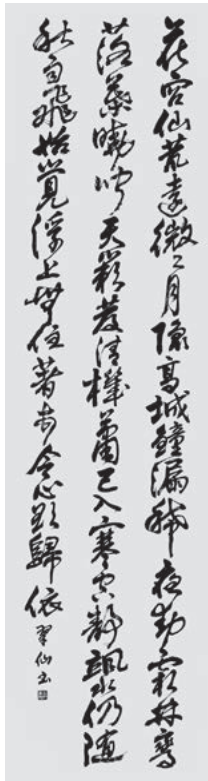 花宮仙梵遠微々月隱高城鐘漏稀夜動霜林驚
落葉曉聞天籟發清機蕭已入寒空靜颯沓仍隨
秋雨飛始覺浮生無住著頓令心欲歸依
翠仙書